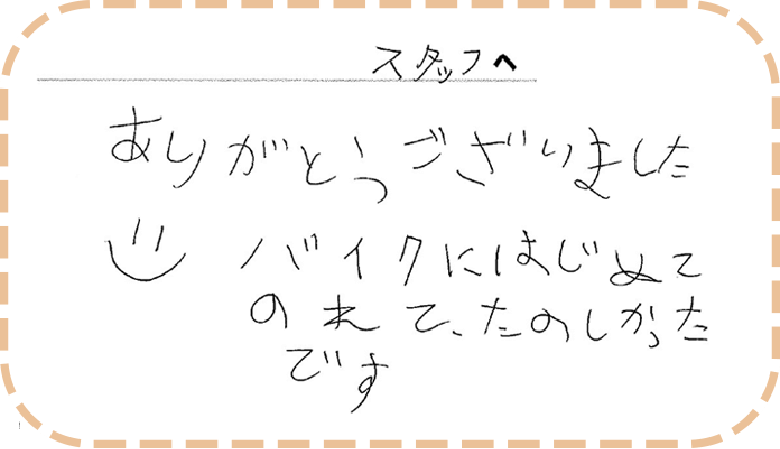 スタッフへ
ありがとうございました
バイクにはじめて
のれて、たのしかった
です